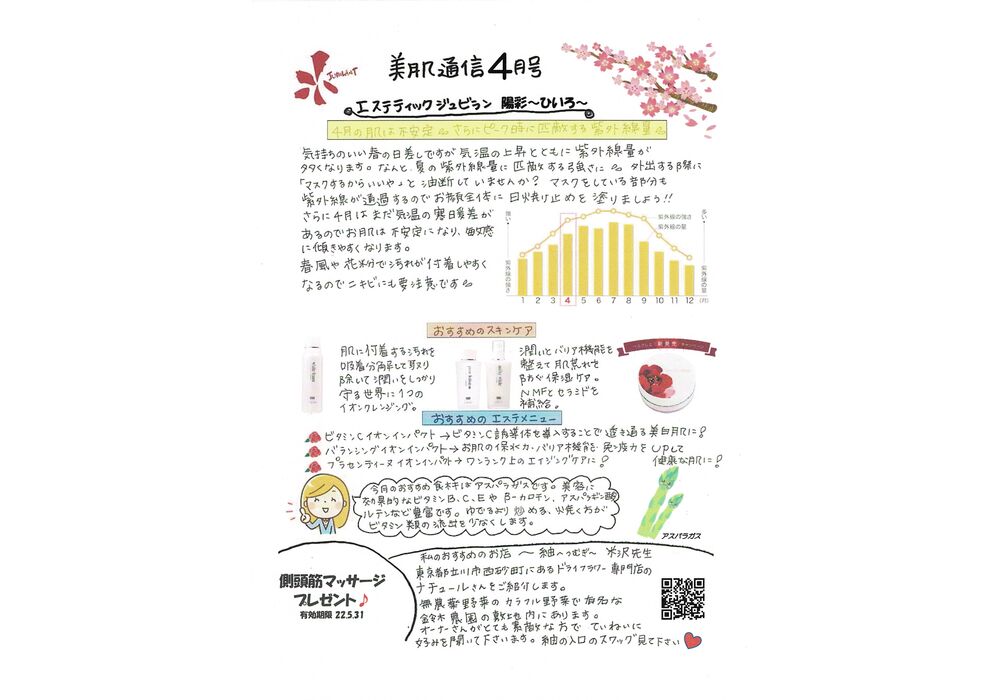 美肌通信4月号
エステティックジュビラン 陽彩～ひいろ～
4月の肌は不安定 さらにピーク時に匹敵する紫外線量
気持ちのいい春の日差しですが気温の上昇とともに紫外線量が
多くなります。なんと、夏の紫外線量に匹敵する強さに 外出する際に
「マスクするからいいや」と油断していませんか？ マスクをしている部分も
紫外線が通過するのでお顔全体に日焼け止めを塗りましょう!!
さらに4月はまだ気温の寒暖差が
あるのでお肌は不安定になり、敏感
に傾きやすくなります。
春風や花粉で汚れが付着しやすく
なるのでニキビにも要注意です
強い
紫外線の強さ
紫外線の強さ
紫外線の量
多い
紫外線の量
1 2 3 4 5 6 7 8 9 10 11 12 (月)
おすすめのスキンケア
肌に付着する汚れを
吸着分解して取り
除いて潤いをしっかり
守る世界に1つの
イオンクレンジング。
潤いとバリア機能を
整えて肌荒れを
防ぐ保湿ケア。
NMFとセラミドを
補給。
新発売
おすすめのエステメニュー
ビタミンCイオンインパクト→ビタミンC誘導体を導入することで透き通る美白肌に!
バランシングイオンインパクト→お肌の保水力・バリア機能・免疫力をUPして
健康な肌に!
プラセンティーヌイオンインパクト→ワンランク上のエイジングケアに!
今月のおすすめ食材はアスパラガスです。美容に
効果的なビタミンB、C、Eやβ-カロテン、アスパラギン酸
ルテンなど豊富です。ゆでるより炒める、焼く方が
ビタミン類の流出を少なくします。
アスパラガス
側頭筋マッサージ
プレゼント♪
有効期限 22.5.31
私のおすすめのお店 ～ 紬～つむぎ～ 米沢先生
東京都立川市西砂町にあるドライフラワー専門店の
ナチュールさんをご紹介します。
無農薬野菜のカラフル野菜で有名な
鈴木農園の敷地内にあります。
オーナーさんがとても素敵な方で ていねいに
好みを聞いて下さいます。紬の入口のスワッグ見て下さい